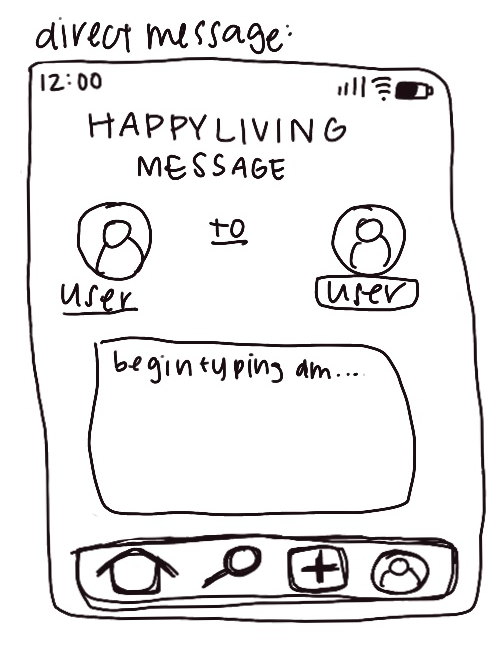 direct message:
12:00
HAPPYLIVING
MESSAGE
to
user user
begin typing dm...